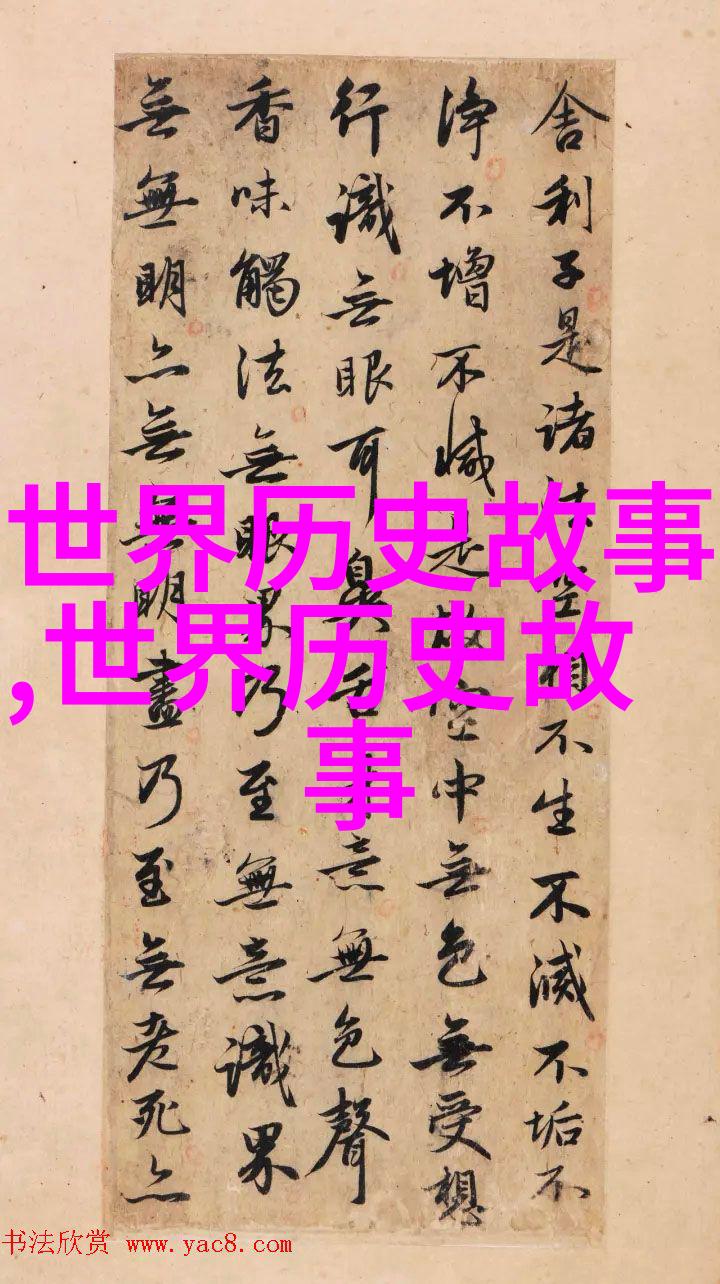 舍利子是诸法空相不生不滅不垢不
淨不增不減是故空中無色無受想
行識無眼耳鼻舌身意無色聲
香味觸法無眼界乃至無意識界
無無明亦無無明盡乃至無老死亦
世界历史故事
,世界历史故
事
书法欣赏 www.yac8.com